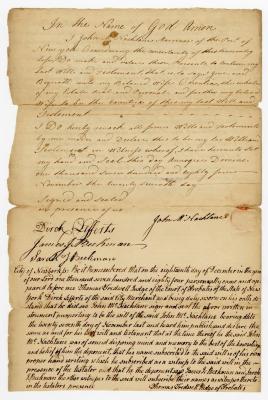 In the Name of God Amen
I John McNachtane Surgeon of the Port of
New york Considering the uncertainty of this transitory
life Do make and declare these Presents to contain my
last Will and Testament that is to say I give and
Bequeath unto my beloved Wife the whole
of my Estate Real and Personal and further my beloved
Wife to be the Executrix of this my last Will and
Testament
I Do hereby revoke all former Wills and testaments
by me made and Declare this to be my last Will and
Testament in Witness whereof I have hereunto Set
my hand and Seal this day Annoque Domini
One thousand Seven hundred and Eighty four
November the twenty seventh day
Signed and Sealed
in presence of us
John McNachtane
Dirck Lefferts
James J. Beekman
Sarah Beekman
City of New York ss. Be it remembered that on the eighteenth day of December in the year
of our Lord one thousand seven hundred and eighty four personally came and ap-
peared before me Thomas Tredwell Judge of the Court of Probates of the State of
New York Dirck Lefferts of the said City Merchant and being duly sworn on his oath de-
clared that he did see John McNachtane sign and seal the above written in-
strument purporting to be the will of the said John McNachtane bearing date
the twenty seventh day of November last and heard him publish and declare the
same as and for his last will and testament that at the time thereof he the said John
McNachtane was of sound disposing mind and memory to the best of the knowledge
and belief of him the deponent, that his name subscribed to the said will is of his own
proper hand writing which he subscribed as a witness to the said will in the
presence of the testator and that he the deponent saw James J. Beekman and Sarah
Beekman the other witnesses to the said will subscribe their names as witnesses thereto
in the testators presence Thomas Tredwell Judge of Probates